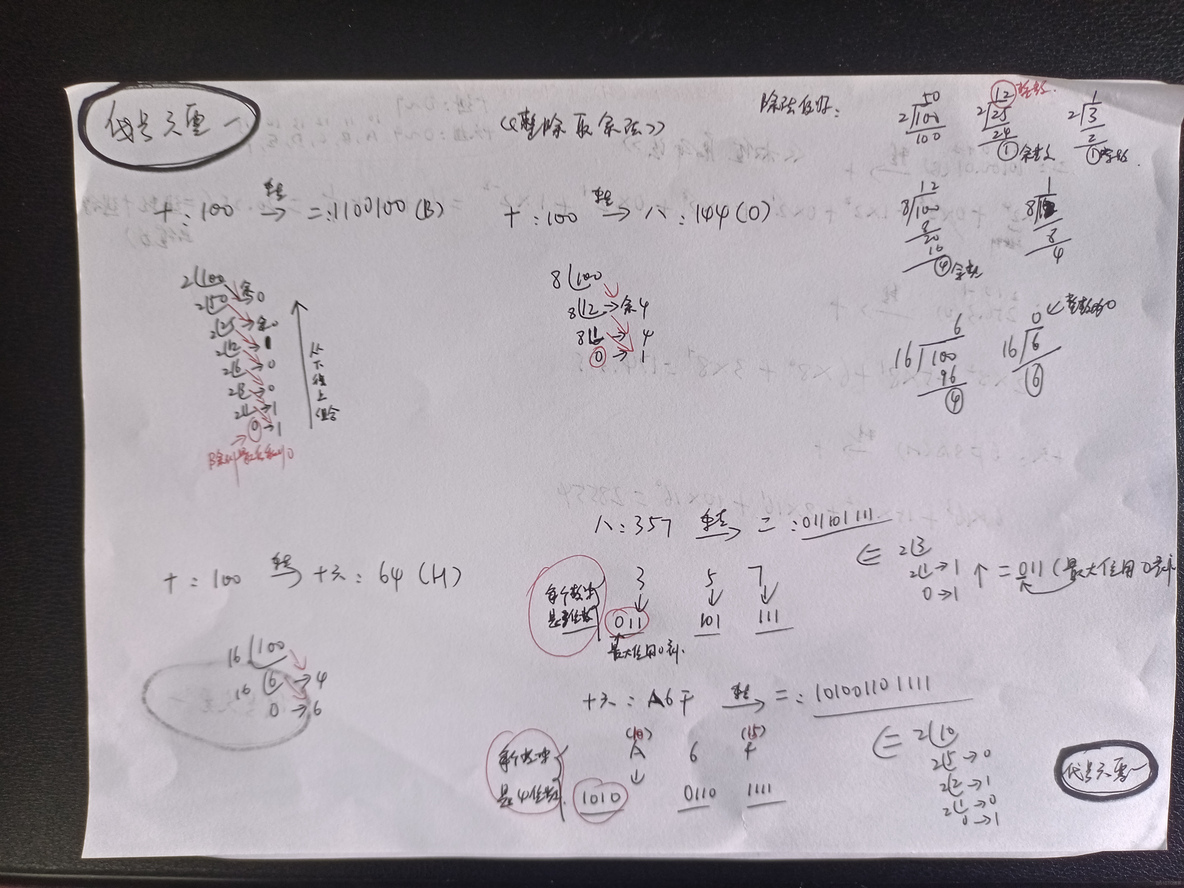 代号天云一
《整除取余法》
除法仅好:
50
2/100
100
12 整数
2/25
24
① 余数
1
2/3
2
① 余数.
十:100 转→ 二:1100100(B)
十:100 转→ 八:144(O)
12
8/100
8
20
16
④ 余数
1
8
8
4
2|100
2|50 余0
2|25→余0
2|12→1
2|6→0
2|3→0
2|1→1
0→1
从下往上组合
8|100
8|12→余4
8|1→4
0→1
6
16/100
96
④
0 整数为0
16/6
⑥
八:357 转→ 二:011101111
3 5 7
每个数字
是三位数
011 101 111
最大位用0补.
2|3
2|1→1
0→1
↑=011(最大位用0补
十:100 转→ 十六:64(H)
16|100
16|6→4
0→6
十六:A6F 转→ 二:101001101111
(10) (15)
A 6 F
每个数字
是4位数.
1010 0110 1111
2|10
2|5→0
2|2→1
2|1→0
0→1
代号天云一